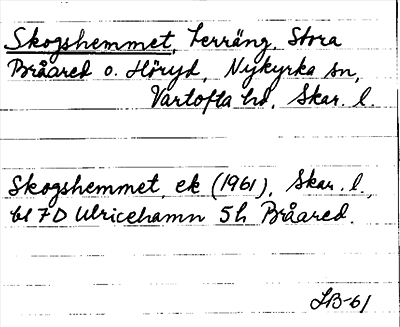 Skogshemmet, Terräng, Stora
Bråared o. Höryd, Nykyrka sn,
Vartofta hd, Skar. l.
Skogshemmet, ek (1961), Skar. l.,
bl 7D Ulricehamn 5h Bråared.
SB-61